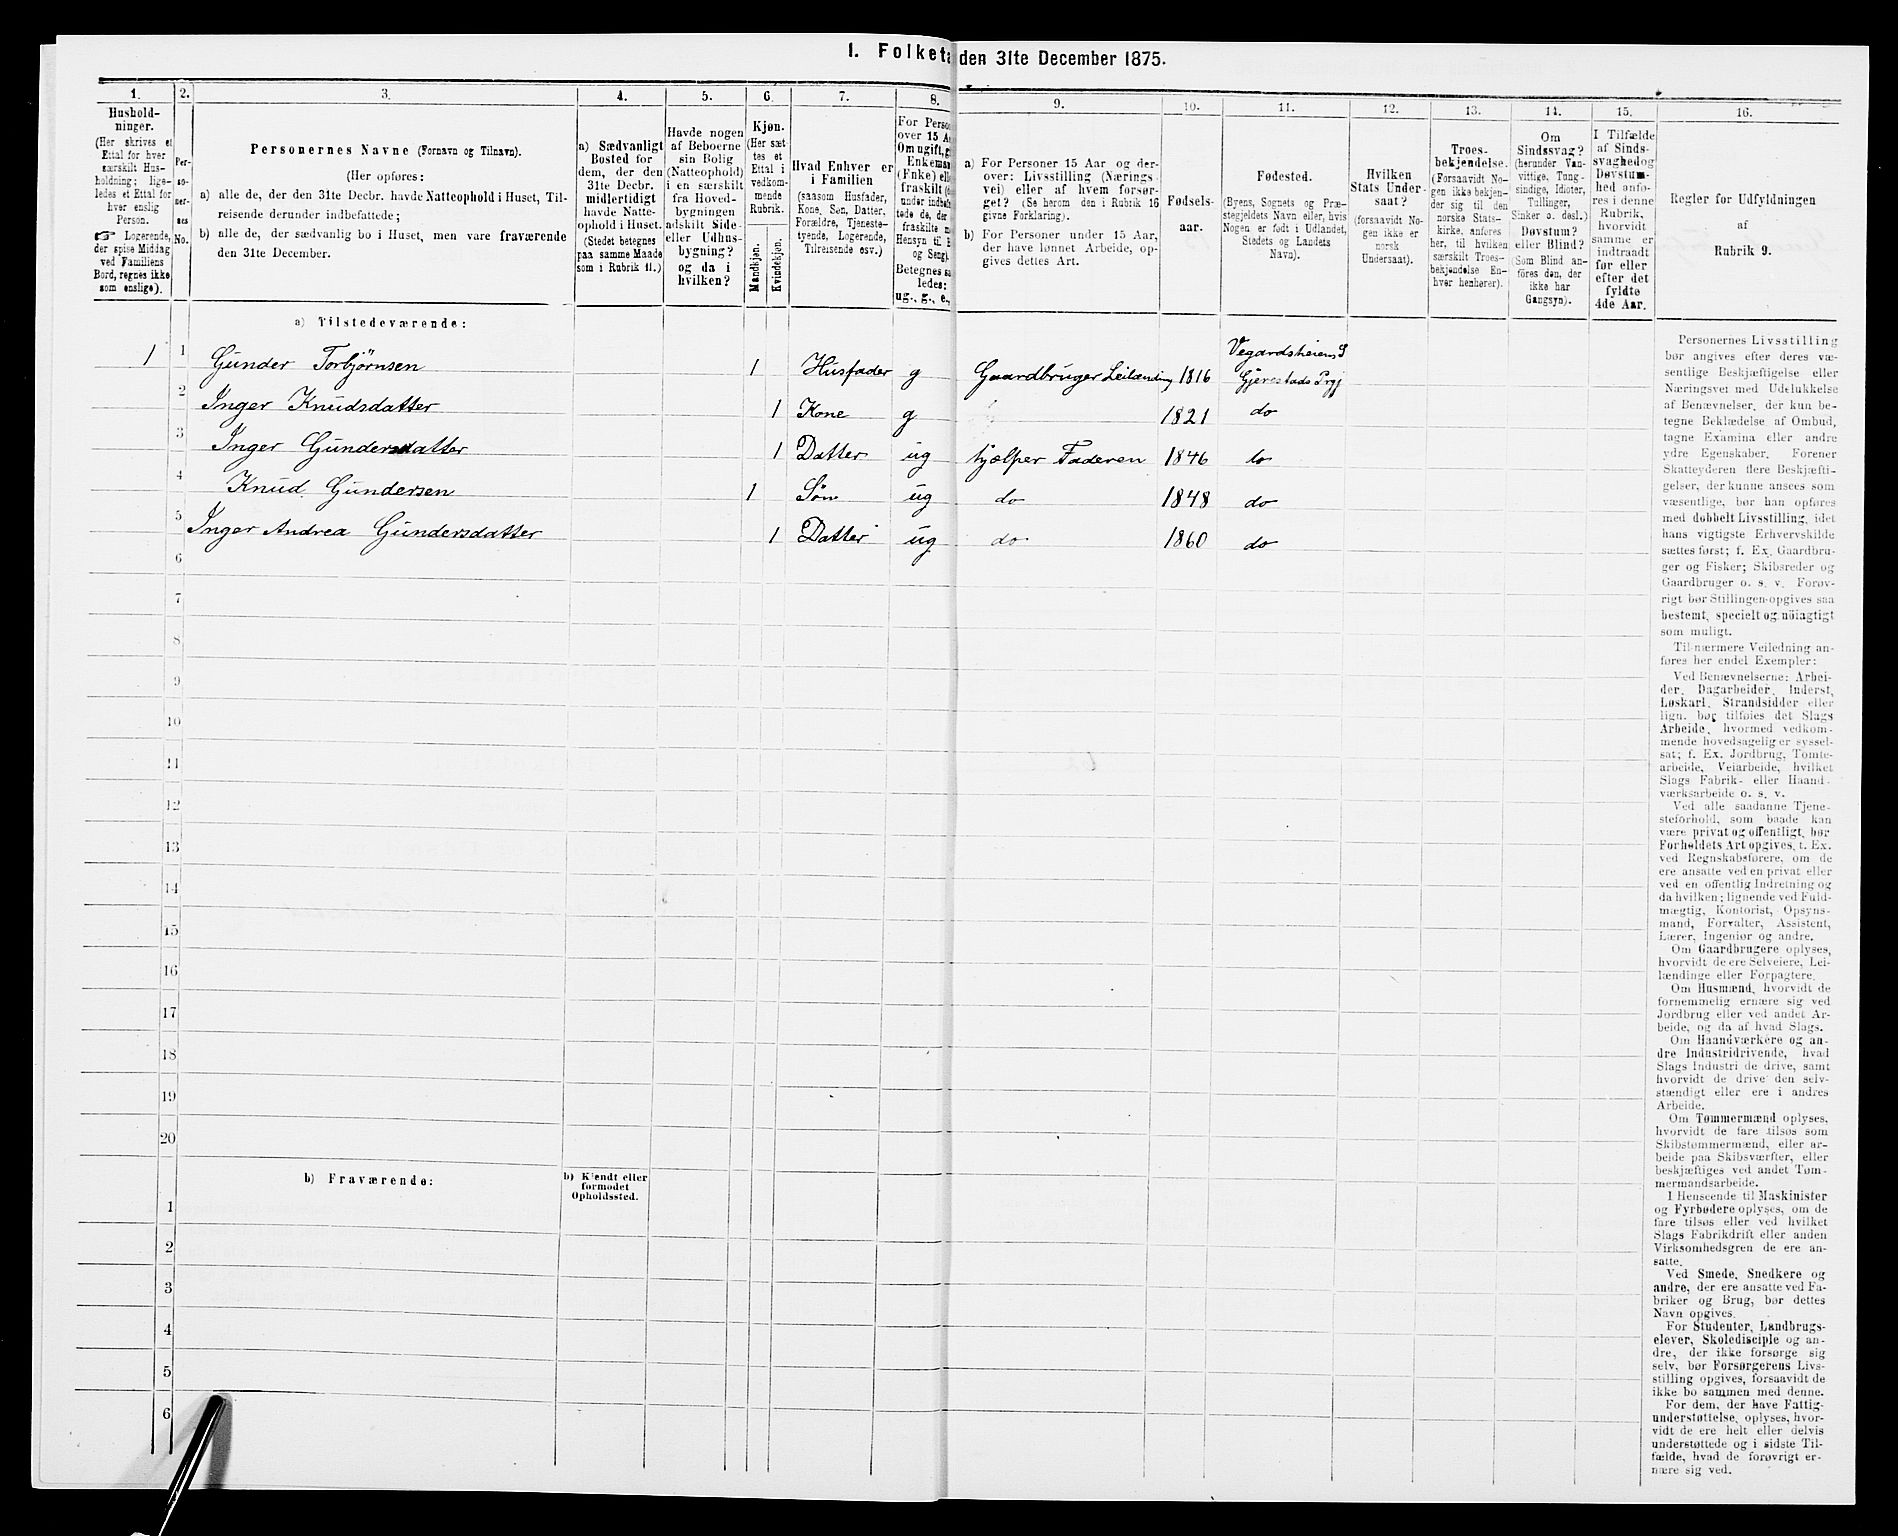 I. Folketæ den 31te December 1875.
1.
2.
3.
4.
5.
6.
7.
8.
9.
10.
11.
12.
13.
14.
15.
16.
Hushold-
ninger.
(Her skrives et
Ettal for hver
særskilt Hus-
holdning; lige-
ledes et Ettal for
hver enslig
Person.
☞ Logerende,
der spise Middag
ved Familiens
Bord, regnes ikke
som enslige).
Per-
so-
ner-
nes
No.
Personernes Navne (Fornavn og Tilnavn).
(Her opføres:
a) alle de, der den 31te Decbr. havde Natteophold i Huset, Til-
reisende derunder indbefattede;
b) alle de, der sædvanlig bo i Huset, men vare fraværende
den 31te December.
a) Sædvanligt
Bosted for
dem, der den
31te Decbr.
midlertidigt
havde Natte-
ophold i Huset.
(Stedet betegnes
paa samme Maade
som i Rubrik 11.)
Havde nogen
af Beboerne
sin Bolig
(Natteophold)
i en særskilt
fra Hoved-
bygningen
adskilt Side-
eller Udhus-
bygning?
og da i
hvilken?
Kjøn.
(Her sæt
tes et
Ettal i
vedkom-
mende
Rubrik.
Mandkjøn.
Kvindekjøn.
Hvad Enhver er
i Familien
(saasom Husfader,
Kone, Søn, Datter,
Forældre, Tjeneste-
tyende, Logerende,
Tilreisende osv.)
For Perso
over 15 A
Om ugift, g
Enkema
(Enke) elle
fraskilt (
under indbef
tede de, der
fraskilte m
Hensyn til B
og Seng).
Betegnes sa
ledes:
ug., g., e.,
a) For Personer 15 Aar og der-
over: Livsstilling (Nærings-
vei) eller af hvem forsør-
get? (Se herom den i Rubrik 16
givne Forklaring).
b) For Personer under 15 Aar,
der have lønnet Arbeide, op-
gives dettes Art.
Fødsels-
aar.
Fødested.
(Byens, Sognets og Præ-
stegjeldets Navn eller, hvis
Nogen er født i Udlandet,
Stedets og Landets
Navn).
Hvilken
Stats Under-
saat?
(forsaavidt No-
gen ikke er
norsk
Undersaat).
Troes-
bekjendelse.
(Forsaavidt No-
gen ikke bekjen-
der sig til den
norske Stats-
kirke, anføres
her, til hvilken
særskilt Troes-
bekjendelse En-
hver henhører).
Om
Sindssvag?
(herunder Van-
vittige, Tung-
sindige, Idioter,
Tullinger,
Sinker o. desl.)
Døvstum?
eller Blind?
(Som Blind an-
føres den, der
ikke har
Gangsyn).
I Tilfælde
af Sinds-
svaghed og
Døvstum-
hed anfø-
res i denne
Rubrik,
hvorvidt
samme er
indtraadt
før eller
efter det
fyldte
4de Aar.
Regler for Udfyldningen
af
Rubrik 9.
a) Tilstedeværende:
1 1 Gunder Torbjørnsen 1 Husfader g Gaardbruger Leilænding 1816 Vegardsheiens S Gjerestads Prgj
2 Inger Knudsdatter 1 Kone g 1821 do
3 Inger Gundersdatter 1 Datter ug hjælper Faderen 1846 do
4 Knud Gundersen 1 Søn ug do 1848 do
5 Inger Andrea Gundersdatter 1 Datter ug do 1860 do
6
7
8
9
10
11
12
13
14
15
16
17
18
19
20
b) Fraværende:
b) Kjendt eller
formodet
Opholdssted.
1
2
3
4
5
6
Personernes Livsstilling
bør angives efter deres væ-
sentlige Beskjæftigelse eller
Næringsvei med Udelukkelse
af Benævnelser, der kun be-
tegne Beklædelse af Ombud,
tagne Examina eller andre
ydre Egenskaber. Forener
Skatteyderen flere Beskjæfti-
gelser, der kunne ansees som
væsentlige, bør han opføres
med dobbelt Livsstilling, idet
hans vigtigste Erhvervskilde
sættes først; f. Ex. Gaardbru-
ger og Fisker; Skibsreder og
Gaardbruger o. s. v. Forøv-
rigt bør Stillingen opgives saa
bestemt, specielt og nöiagtigt
som muligt.
Til nærmere Veiledning an-
føres her endel Exempler:
Ved Benævnelserne: Arbei-
der, Dagarbeider, Inderst,
Løskarl, Strandsidder eller
lign. bør tilføies det Slags
Arbeide, hvormed vedkom-
mende hovedsagelig er syssel-
sat; f. Ex. Jordbrug, Tomte-
arbeide, Veiarbeide, hvilket
Slags Fabrik- eller Haand-
værksarbeide o. s. v.
Ved alle saadanne Tjene-
steforhold, som baade kan
være privat og offentligt, bør
Forholdets Art opgives, t. Ex.
ved Regnskabsførere, om de
ere ansatte ved en privat eller
ved en offentlig Indretning og
da hvilken; lignende ved Fuld-
mægtig, Kontorist, Opsyns-
mand, Forvalter, Assistent,
Lærer, Ingeniør og andre.
Om Gaardbrugere oplyses,
hvorvidt de ere Selveiere, Lei-
lændinge eller Forpagtere.
Om Husmænd, hvorvidt de
fornemmelig ernære sig ved
Jordbrug eller ved andet Ar-
beide, og da af hvad Slags.
Om Haandværkere og an-
dre Industridrivende, hvad
Slags Industri de drive, samt
hvorvidt de drive den selv-
stændigt eller ere i andres
Arbeide.
Om Tømmermænd oplyses,
hvorvidt de fare tilsøs som
Skibstømmermænd, eller ar-
beide paa Skibsværfter, eller
beskjæftiges ved andet Tøm-
mermandsarbeide.
I Henseende til Maskinister
og Fyrbødere oplyses, om de
fare tilsøs eller ved hvilket
Slags Fabrikdrift eller anden
Virksomhedsgren de ere an-
satte.
Ved Smede, Snedkere og
andre, der ere ansatte ved Fa-
briker og Brug, bør dettes
Navn opgives.
For Studenter, Landbrugs-
elever, Skoledisciple og an-
dre, der ikke forsørge sig
selv, bør Forsørgerens Livs-
stilling opgives, forsaavidt de
ikke bo sammen med denne.
For dem, der have Fattig-
understøttelse, oplyses, hvor-
vidt de ere helt eller delvis
understøttede og i sidste Til-
fælde, hvad de forøvrigt er-
nære sig ved.